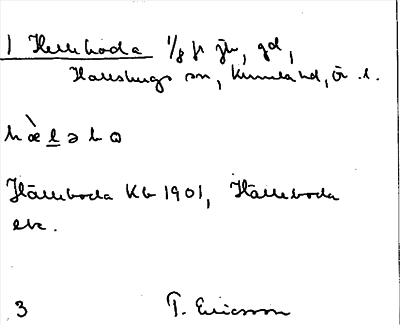 1 Hälleboda 1/8 fr jb, gd,
Hallsbergs sn, Kumla hd, Ö. l.
hæ̀l̲əbɷ
Hälleboda Kb 1901, Hälleboda
etc.
3 T. Ericsson